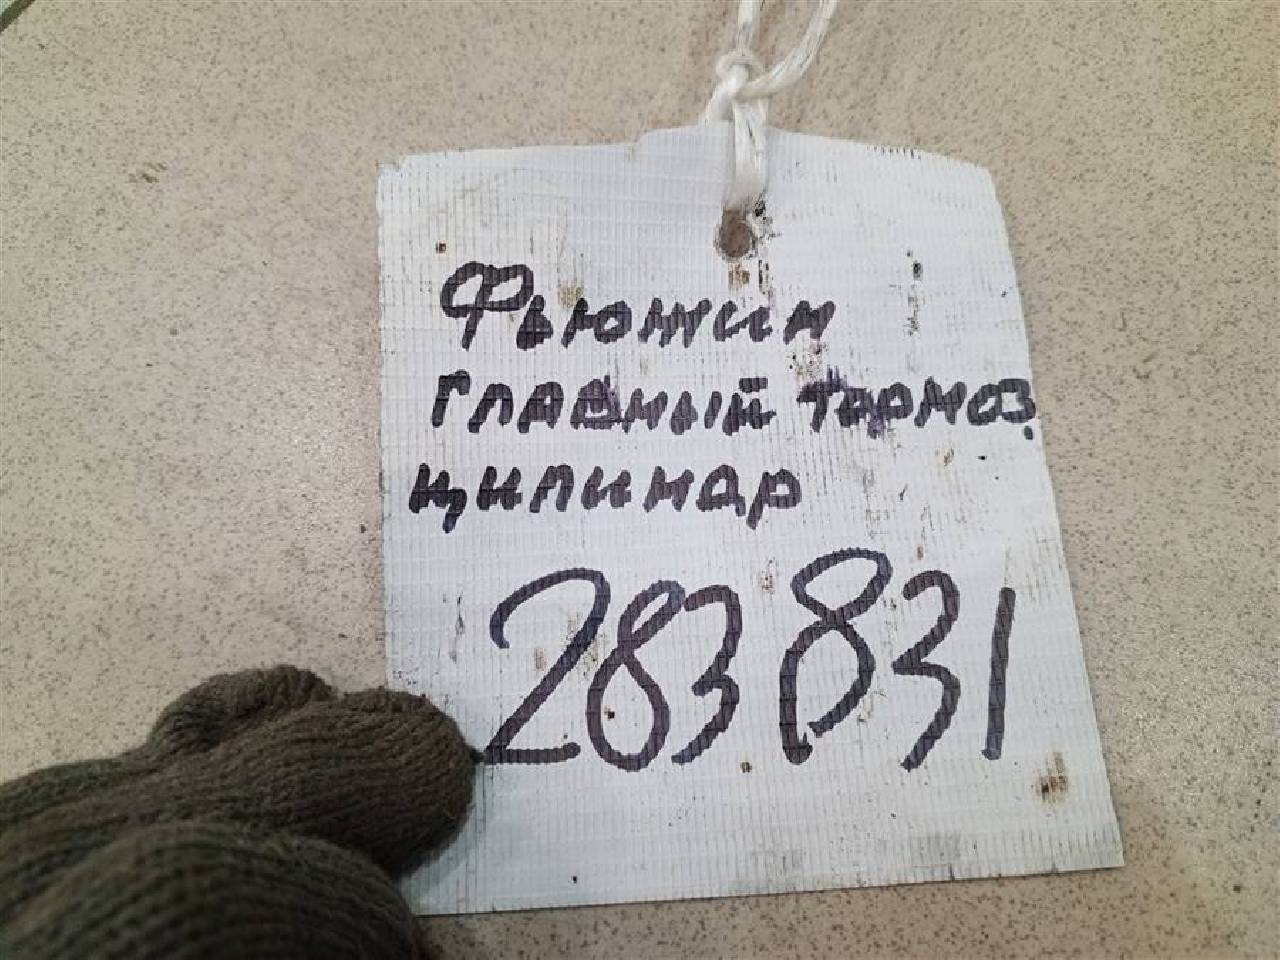 Фьюжин
главный тормоз.
цилиндр
283831